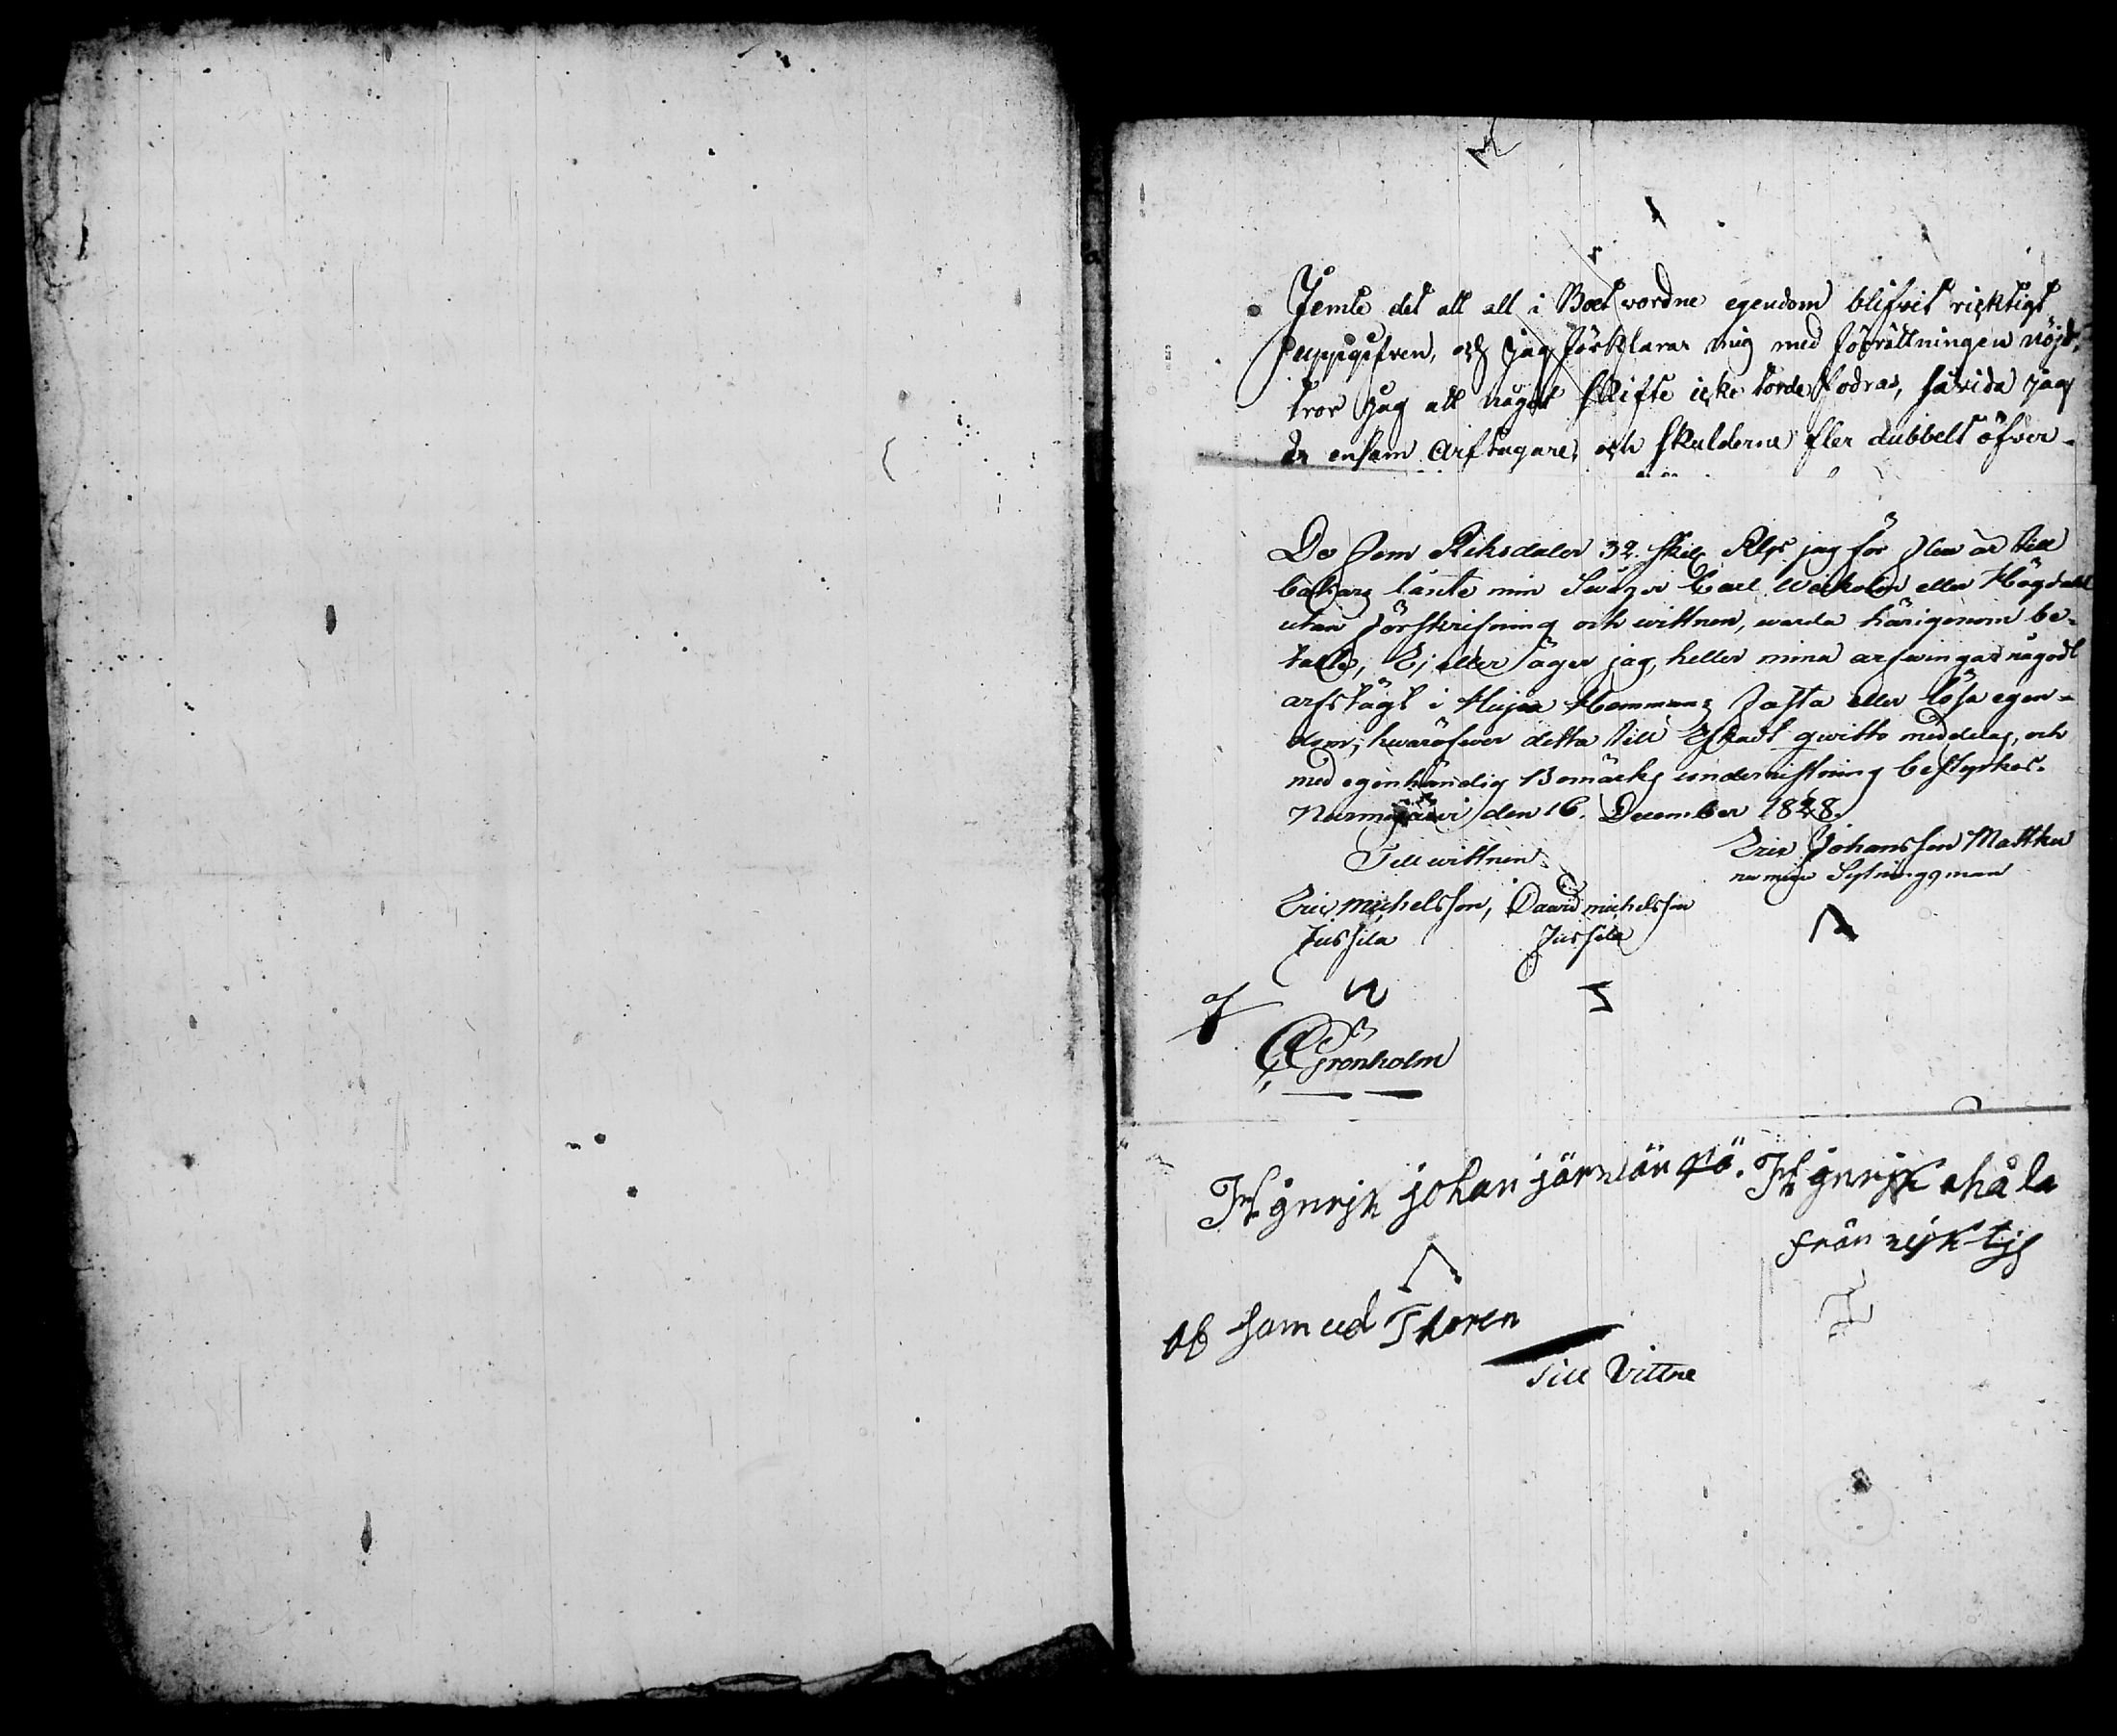 Jemte det att all i Boet vordne egendom blifvit ricktigt
uppgifven, och jag förklarar mig med förrättningen nöjd,
tror jag att något skifte icke torde fodras, såvida jag
är ensam Arftagare, och skulderne fler dubbelt öfver-
De fem Riksdaler 32 skill Rgs jag för flera år till
bakars lånte min Swåger Carl Wekolin eller Högdahl
utan förskrifning och wittnen, warda härigenom be-
talte; Ej eller äger jag, heller mina arfwingar någodt
arfstägt i Hujaa Hemmans fasta eller lösa egen-
dom; hwaröfwer detta till Ifkadt qwitto meddelas, och
med egenhändig Bomärks underristning bestyrkes.
Nurmijärvi den 16. December 1828.
Till wittnen
Eric Johansson Matku
Sytningzman
Eric Michelsson, David michelsson
Jussila Jussila
af
Grönholm
Hginrjk johan järnän pä. Hginrjk ahåla
från risktjs
Af Samuel Thoren
Till Vittne